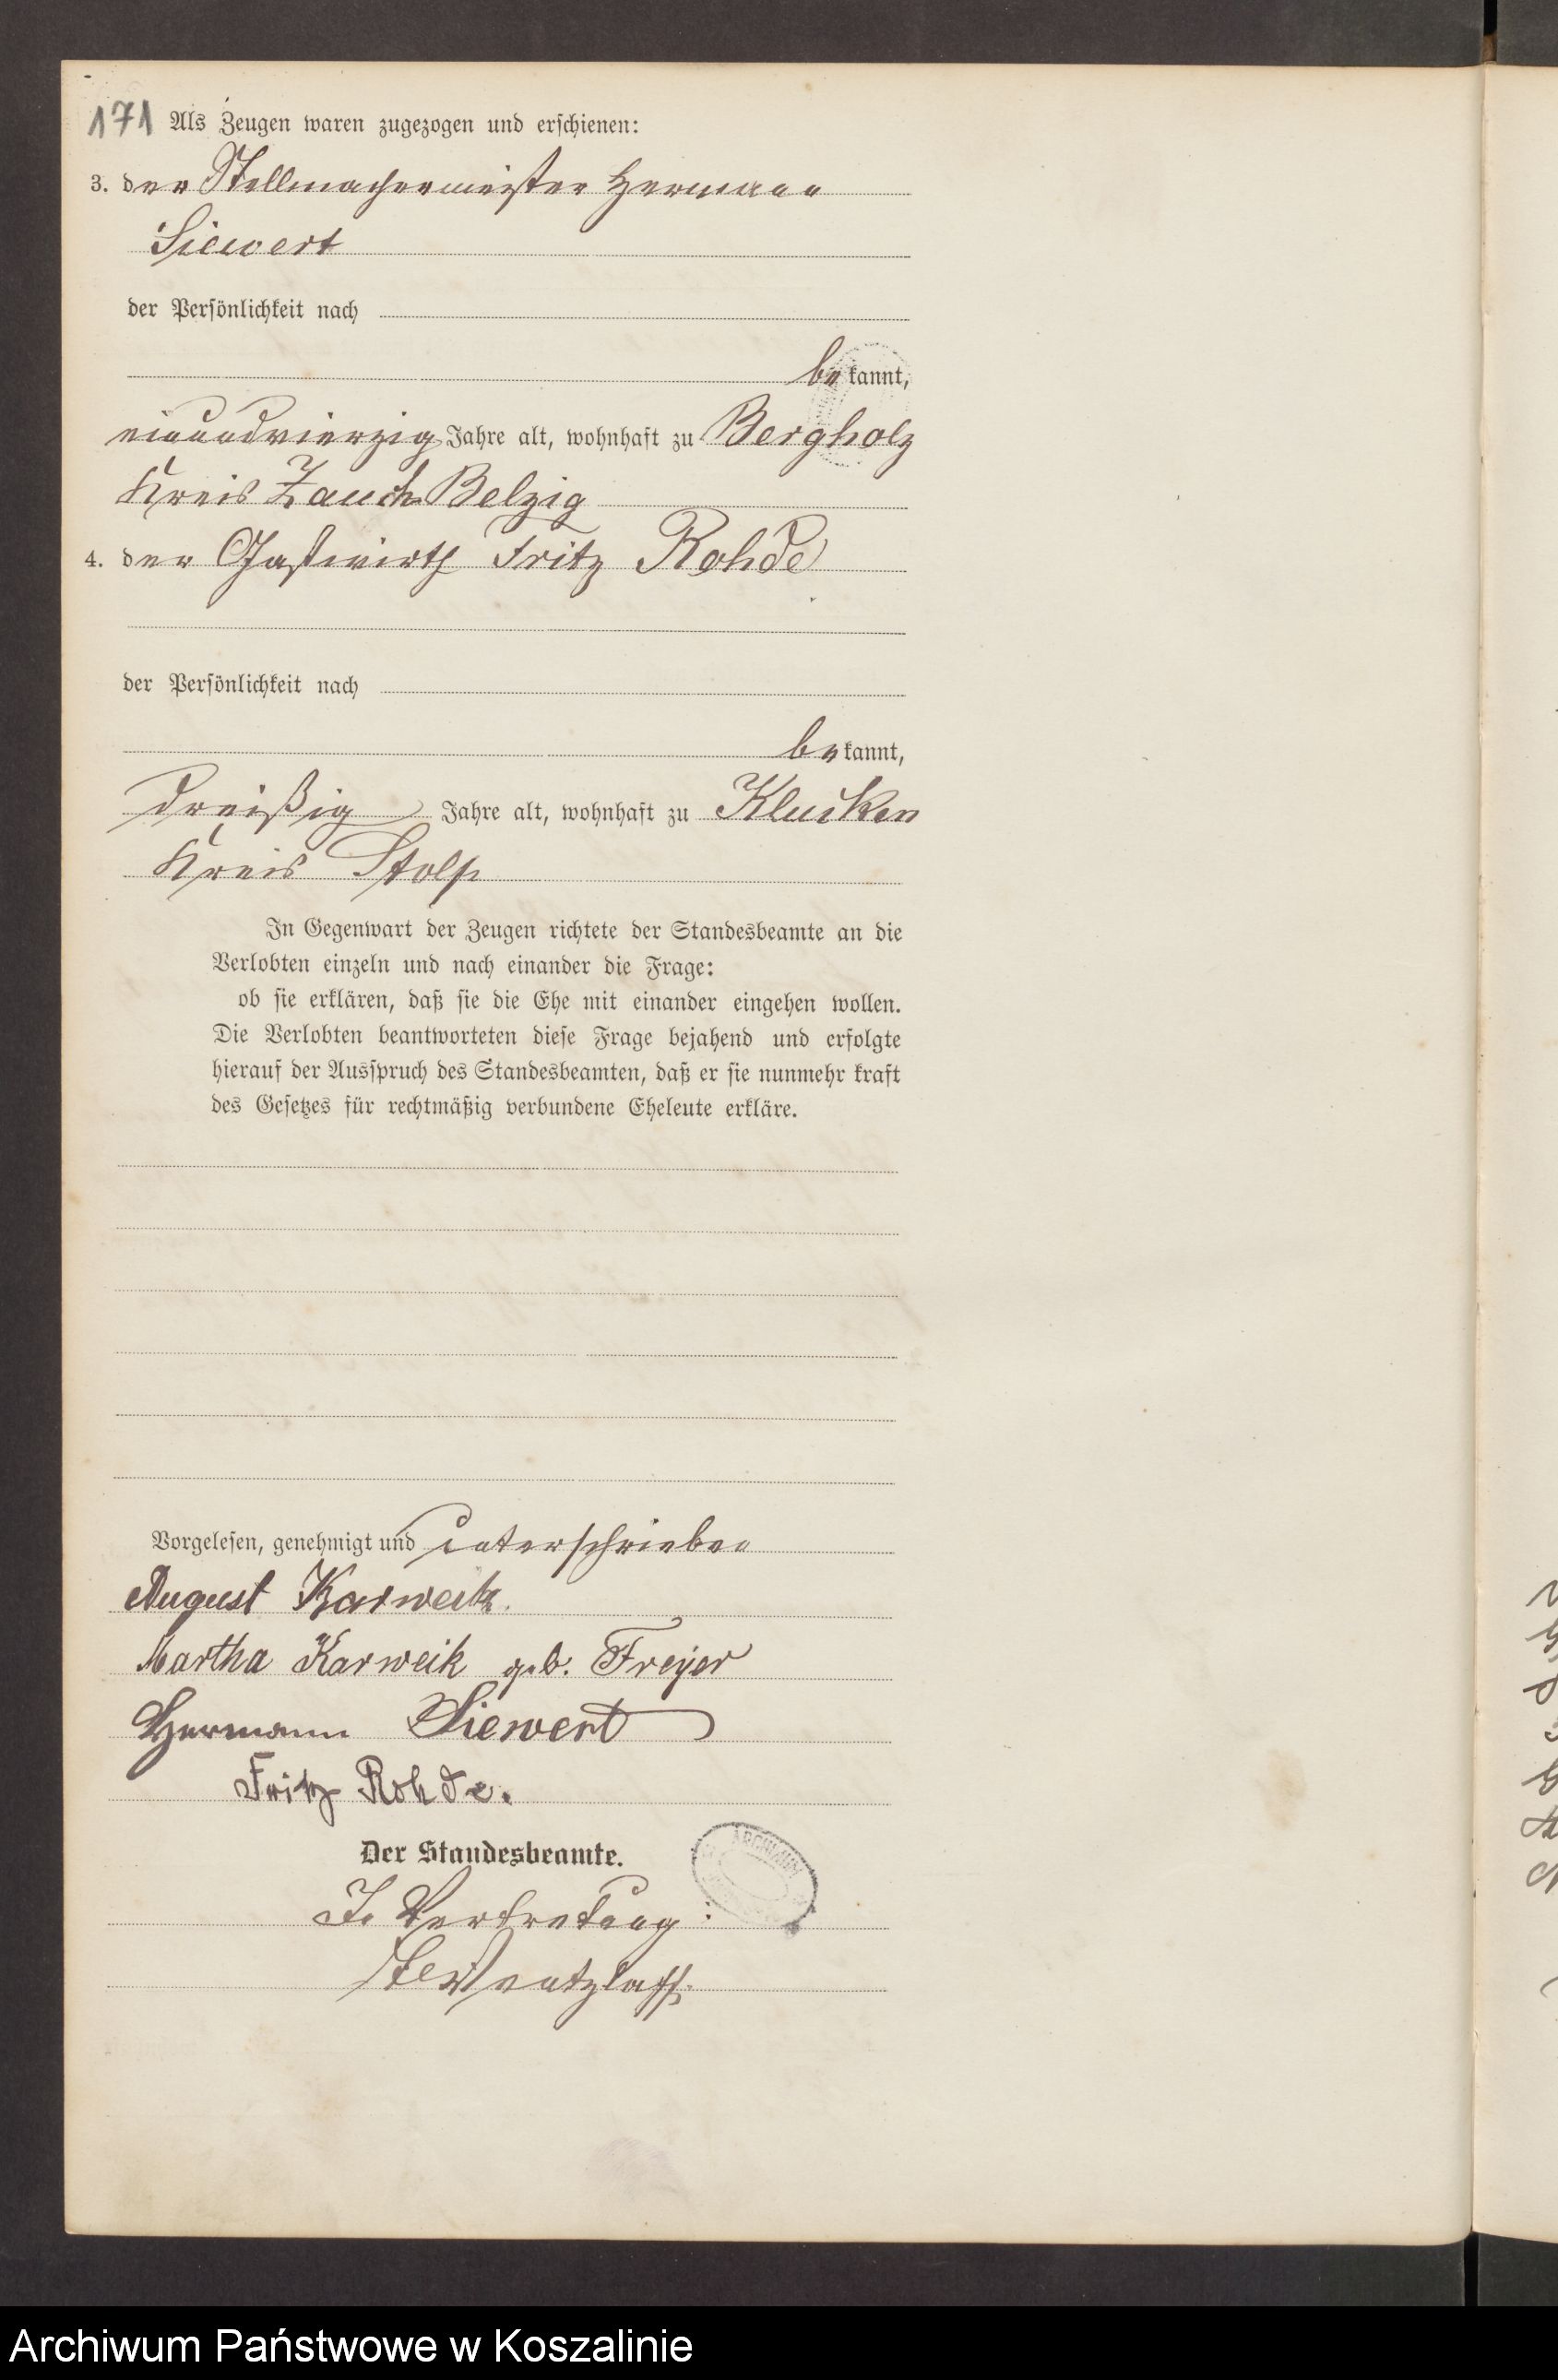 171 Als Zeugen waren zugezogen und erschienen:
3. der Stellmachermeister Hermann
Siewert
der Persönlichkeit nach
bekannt,
einundvierzig Jahre alt, wohnhaft zu Bergholz
Kreis Zauch Belzig
4. der Gastwirth Fritz Rohde
der Persönlichkeit nach
bekannt,
dreißig Jahre alt, wohnhaft zu Klucken
Kreis Stolp
In Gegenwart der Zeugen richtete der Standesbeamte an die
Verlobten einzeln und nach einander die Frage:
ob sie erklären, daß sie die Ehe mit einander eingehen wollen.
Die Verlobten beantworteten diese Frage bejahend und erfolgte
hierauf der Ausspruch des Standesbeamten, daß er sie nunmehr kraft
des Gesetzes für rechtmäßig verbundene Eheleute erkläre.
Vorgelesen, genehmigt und unterschrieben
August Karweik.
Martha Karweik geb. Freyer
Hermann Siewert
Fritz Rohde.
Der Standesbeamte.
In Vertretung:
Archiwum Państwowe w Koszalinie